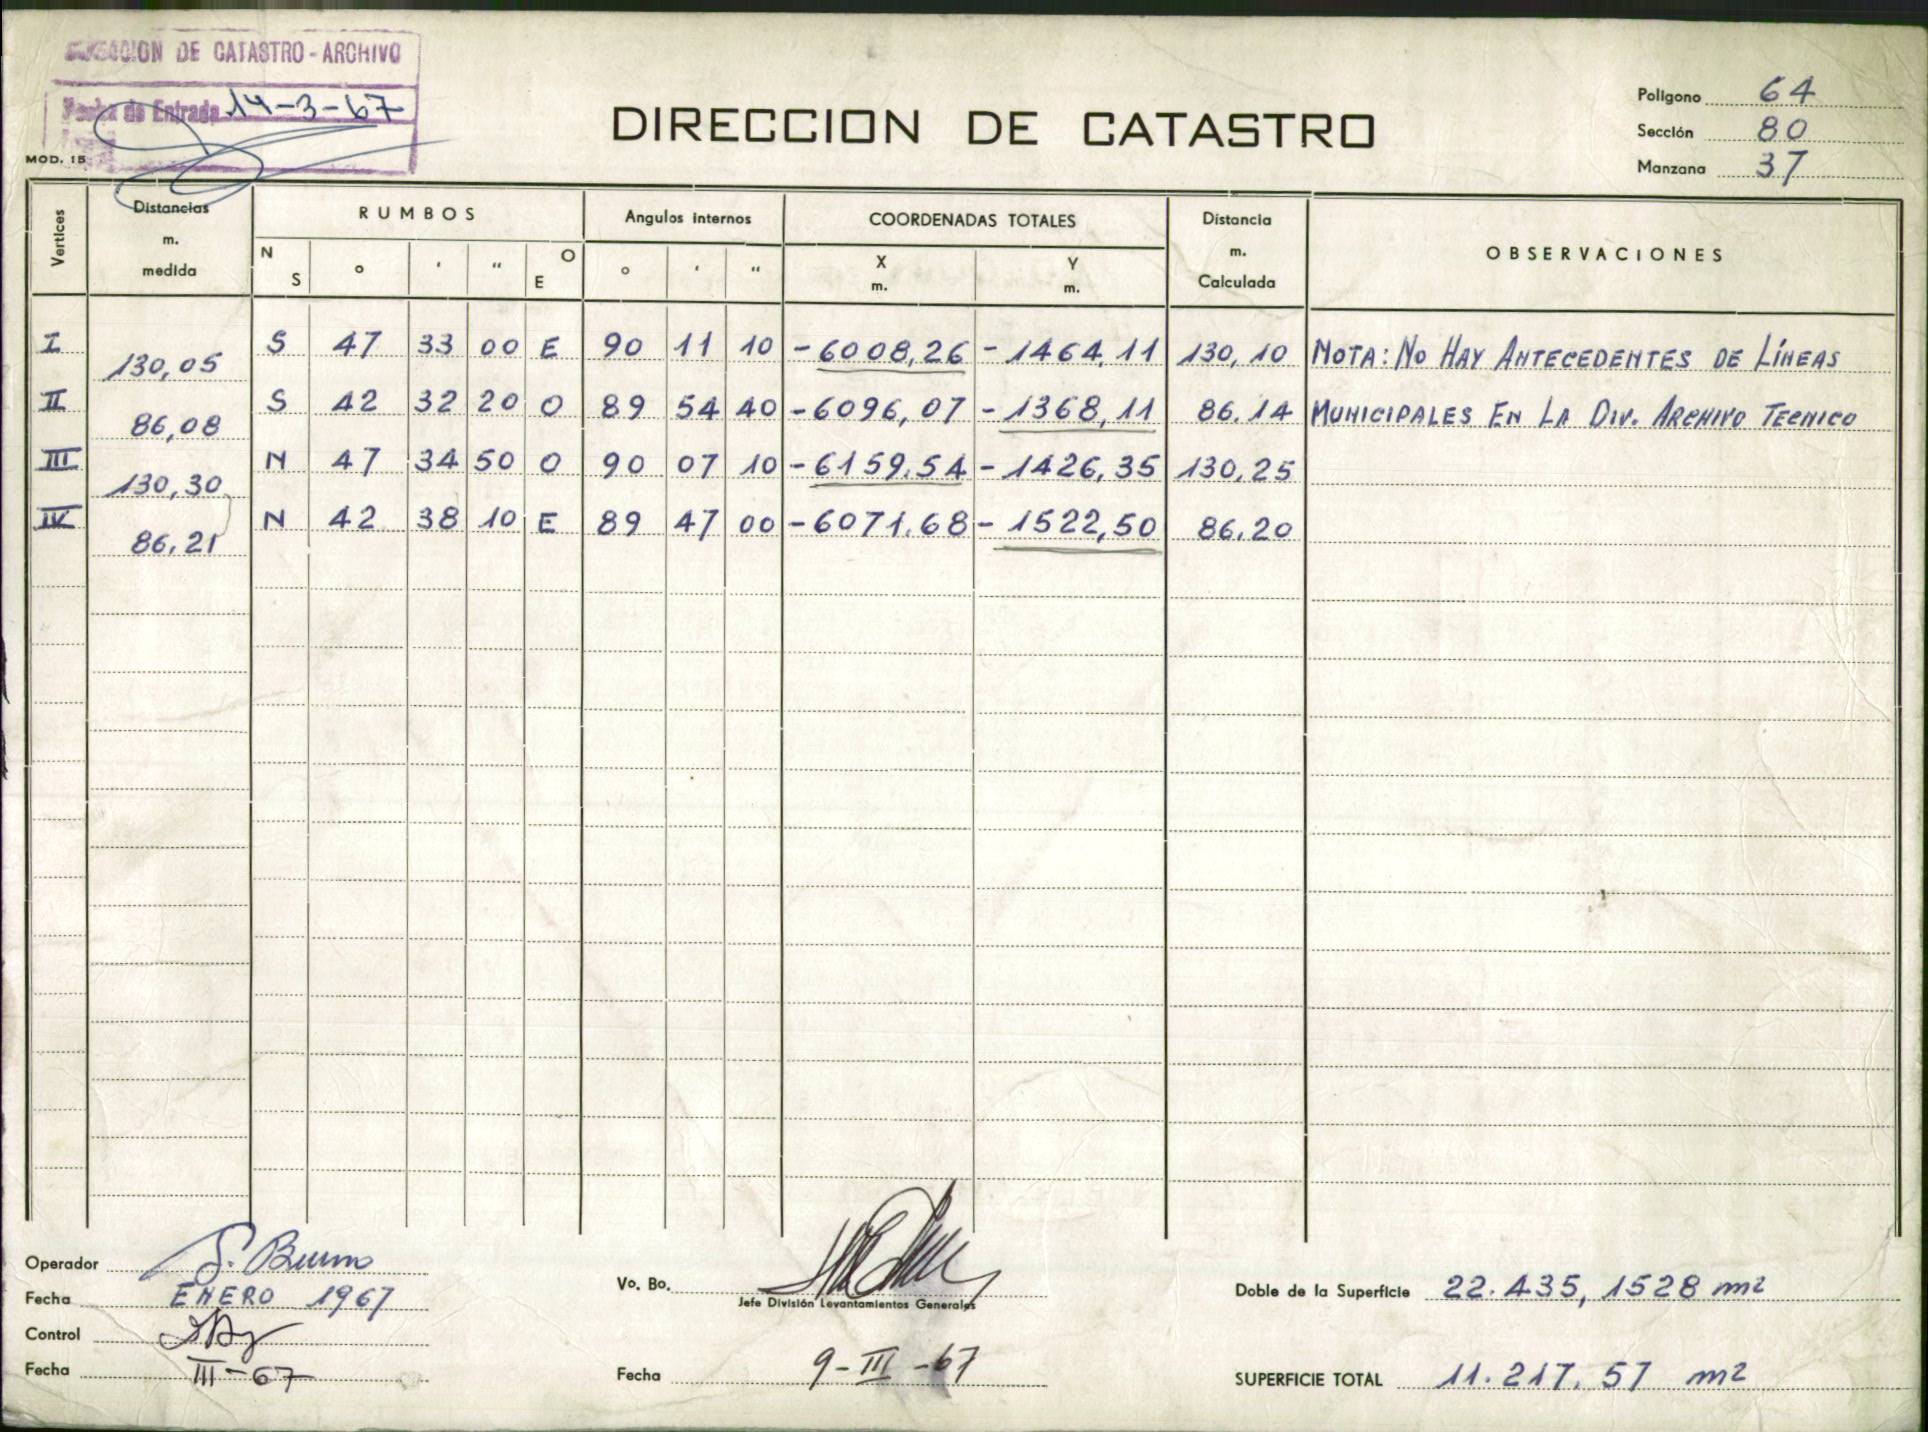 DIRECCION DE CATASTRO - ARCHIVO
Fecha de Entrada 14-3-67
MOD. 15
DIRECCION DE CATASTRO
Polígono 64
Sección 80
Manzana 37
Vertices Distancias m. medida RUMBOS Angulos internos COORDENADAS TOTALES Distancia m. Calculada OBSERVACIONES
N S ° ' " O E ° ' " X m. Y m.
I 130,05 S 47 33 00 E 90 11 10 -6008,26 -1464,11 130,10 NOTA: NO HAY ANTECEDENTES DE LÍNEAS
II 86,08 S 42 32 20 O 89 54 40 -6096,07 -1368,11 86.14 MUNICIPALES EN LA DIV. ARCHIVO TECNICO
III 130,30 N 47 34 50 O 90 07 10 -6159.54 -1426,35 130,25
IV 86,21 N 42 38 10 E 89 47 00 -6071.68 -1522,50 86.20
Operador
Fecha ENERO 1967
Control
Fecha III-67
Vo. Bo.
Jefe División Levantamientos Generales
Fecha 9-III-67
Doble de la Superficie 22.435,1528 m2
SUPERFICIE TOTAL 11.217.57 m2